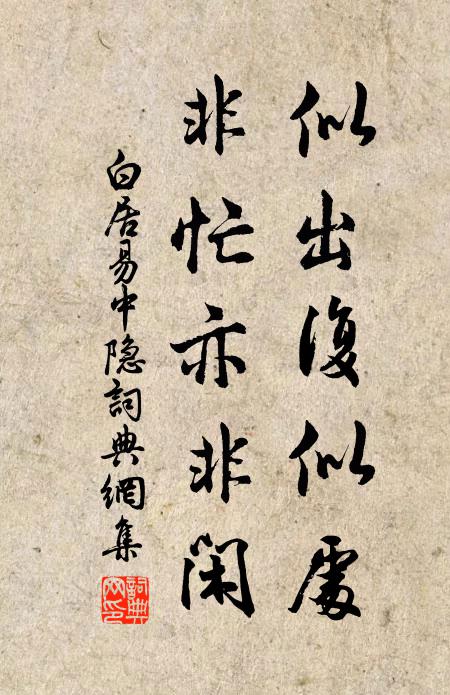 似出復似處
非忙亦非閑
白居易中隐詞典網集
詞典网印